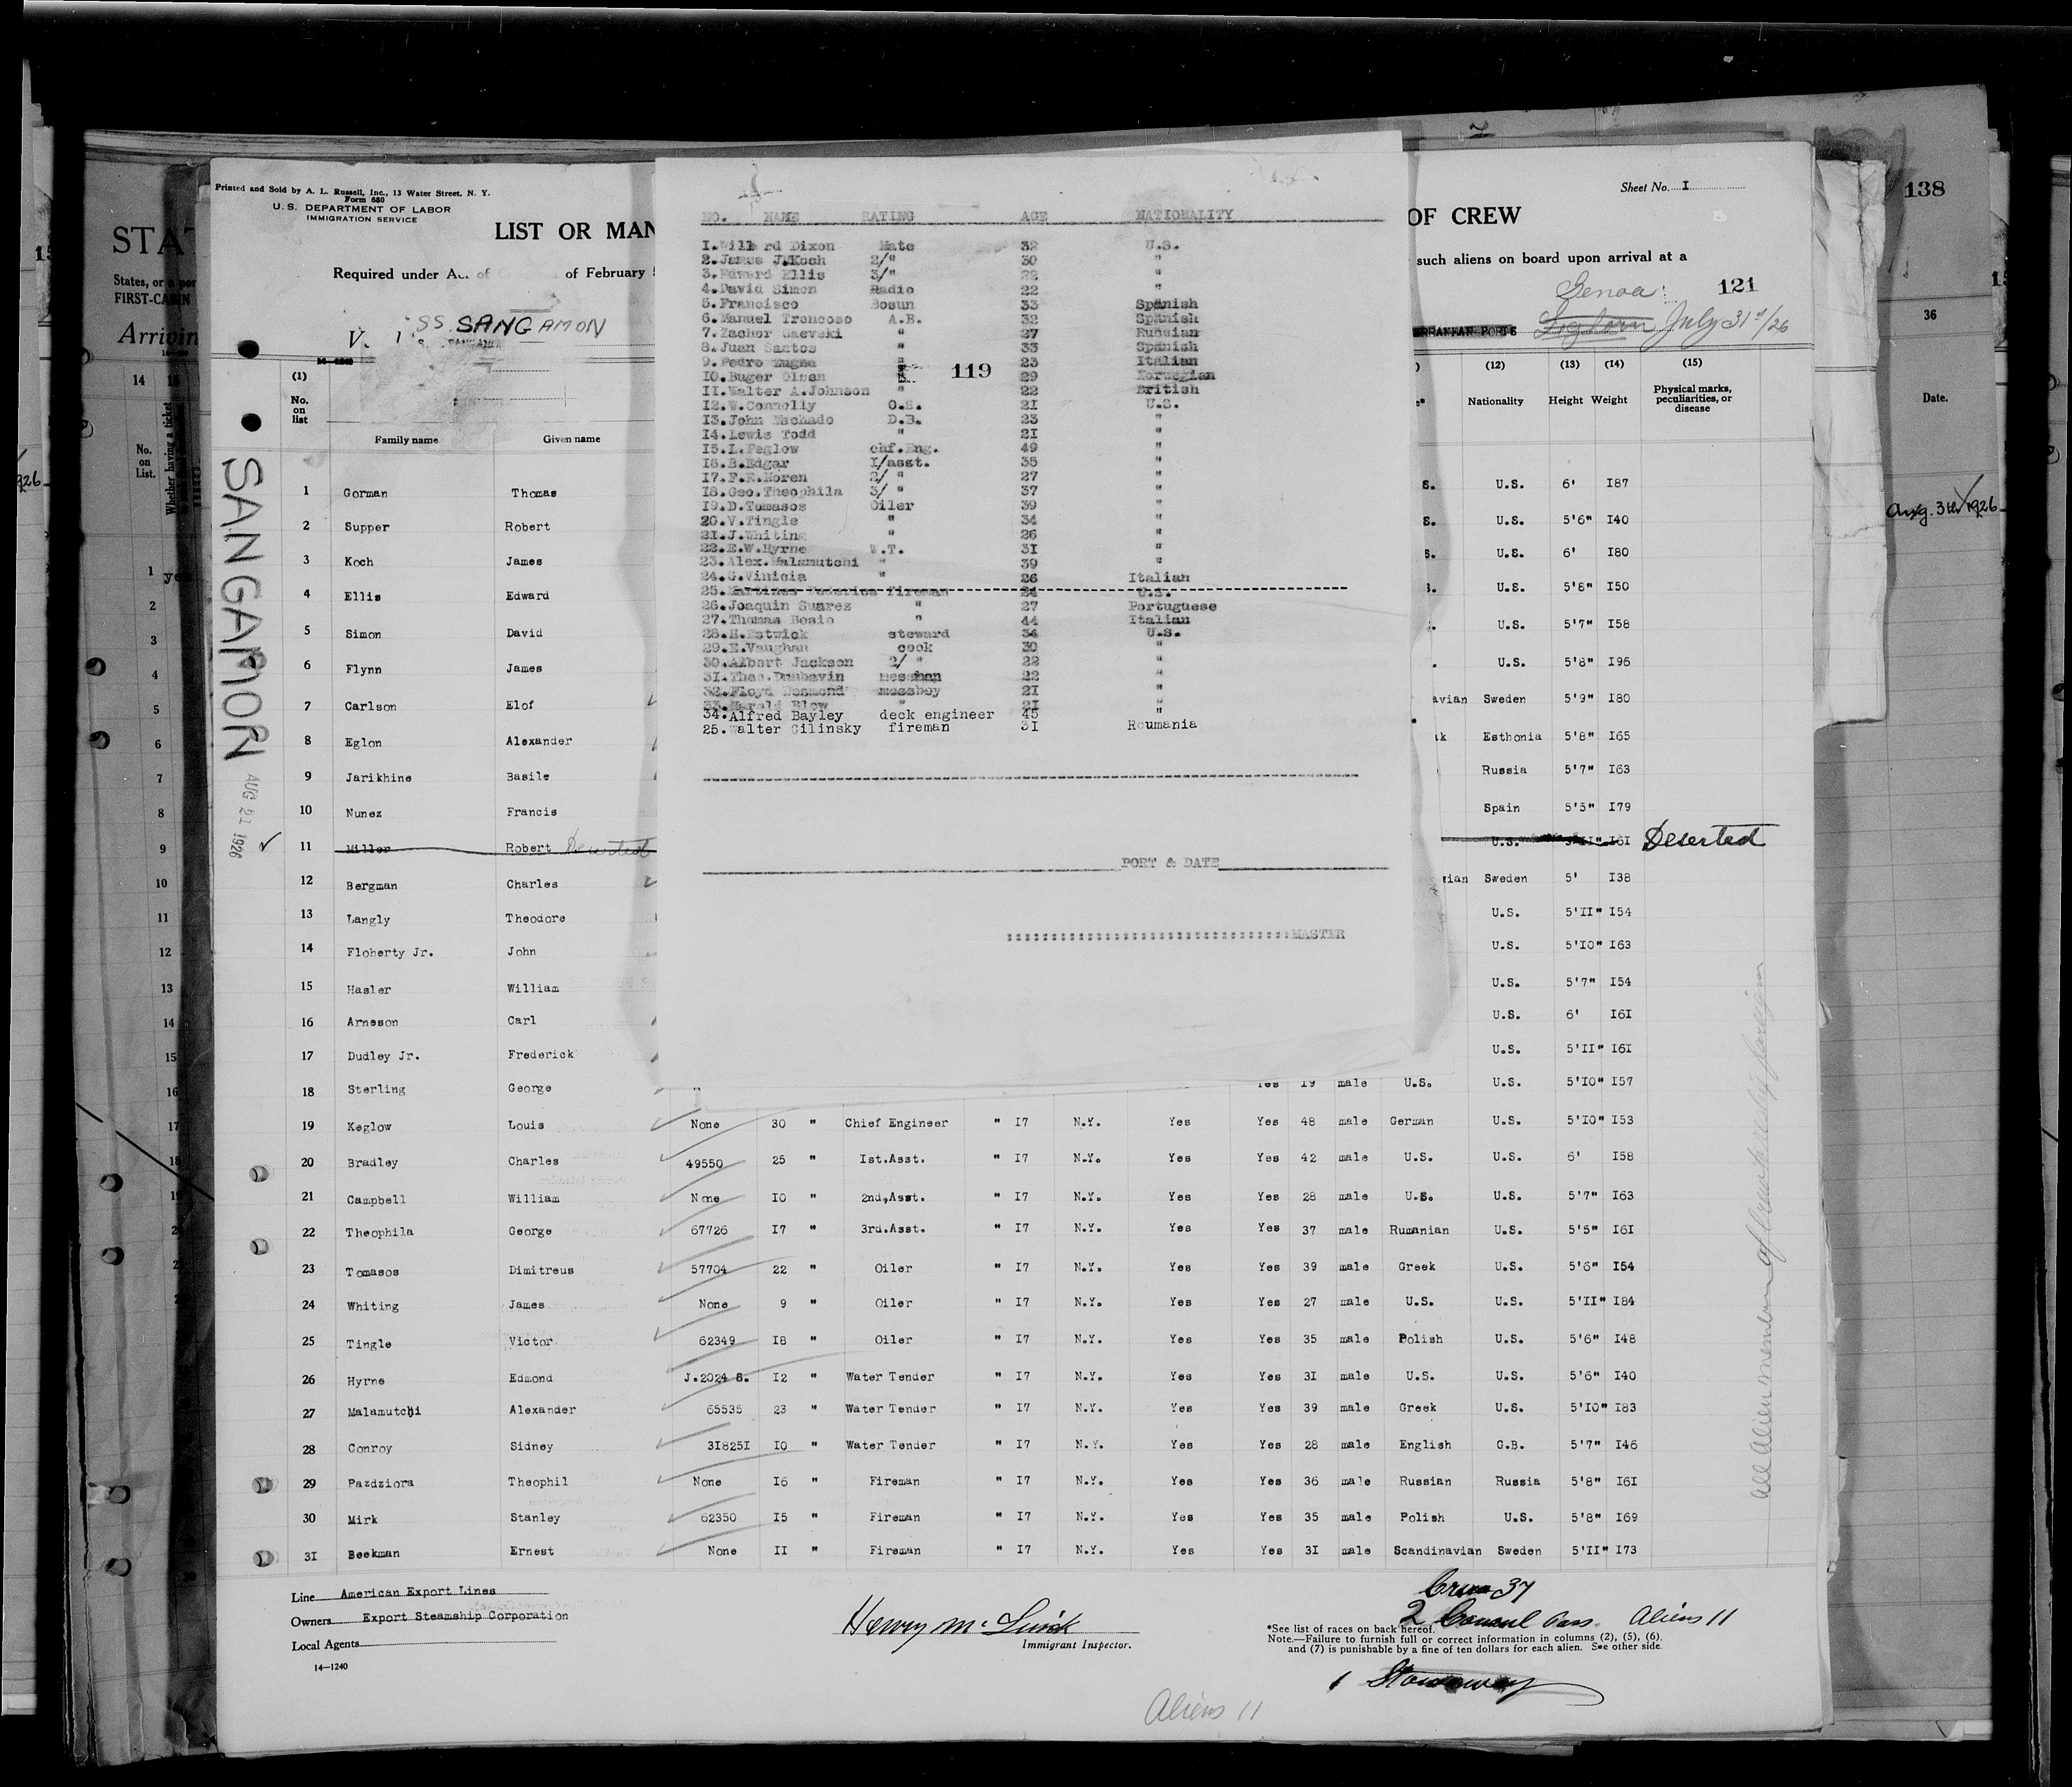 Printed and Sold by A. L. Russell, Inc., 13 Water Street, N. Y.
Form 680
U. S. DEPARTMENT OF LABOR
IMMIGRATION SERVICE
Sheet No. I
LIST OR MAN OF CREW
Required under Ac. of of February such aliens on board upon arrival at a
Genoa 121
SS. SANGAMON
July 31st/26
(1) (12) (13) (14) (15)
No. on list Family name Given name Nationality Height Weight Physical marks, peculiarities, or disease
SANGAMON
AUG 21 1926
NO. NAME RATING AGE NATIONALITY
I. Willard Dixon Mate 32 U.S.
2. James J.Koch 2/" 30 "
3. Edward Ellis 3/" 22 "
4. David Simon Radio 22 "
5. Francisco Bosun 33 Spanish
6. Manuel Troncoso A.B. 32 Spanish
7. Zachor Gaevski " 27 Russian
8. Juan Santos " 33 Spanish
9. Pedro " 23 Italian
IO. Buger Olsen 29 Norwegian
119
II. Walter A.Johnson " 22 British
I2. W.Connolly O.S. 2I U.S.
I3. John Machado D.B. 23 "
I4. Lewis Todd " 2I "
I5. L. Peglow chf.Eng. 49 "
I6. B.Edgar I/asst. 35 "
I7. F.E.Noren 2/ " 27 "
I8. Geo.Theophila 3/ " 37 "
I9. D.Tomasos Oiler 39 "
20. V.Tingle " 34 "
21. J.Whiting " 26 "
22. E.W.Hyrne W.T. 3I "
23. Alex.Malamutchi " 39 "
24. G.Vinicia " 26 Italian
25. Martinez Federico fireman 24 U.S.
26. Joaquin Suarez " 27 Portuguese
27. Thomas Bosio " 44 Italian
28. H.Estwick steward 34 U.S.
29. E.Vaughan cook 30 "
30. Albert Jackson 2/ " 22 "
3I. Theo.Dunbavin messman 22 "
32. Floyd Desmond messboy 2I "
33. Harald Blow " 2I "
34. Alfred Bayley deck engineer 45 "
25. Walter Cilinsky fireman 3I Roumania
PORT & DATE
MASTER
1 Gorman Thomas S. U.S. 6' I87
2 Supper Robert S. U.S. 5'6" I40
3 Koch James S. U.S. 6' I80
4 Ellis Edward U.S. 5'8" I50
5 Simon David U.S. 5'7" I58
6 Flynn James U.S. 5'8" I96
7 Carlson Elof avian Sweden 5'9" I80
8 Eglon Alexander Esthonia 5'8" I65
9 Jarikhine Basile Russia 5'7" I63
10 Nunez Francis Spain 5'5" I79
11 Miller Robert Deserted U.S. I6I Deserted
12 Bergman Charles ian Sweden 5' I38
13 Langly Theodore U.S. 5'II" I54
14 Floherty Jr. John U.S. 5'IO" I63
15 Hasler William U.S. 5'7" I54
16 Arneson Carl U.S. 6' I6I
17 Dudley Jr. Frederick U.S. 5'II" I6I
18 Sterling George Yes 19 male U.S. U.S. 5'IO" I57
19 Keglow Louis None 30 " Chief Engineer " I7 N.Y. Yes Yes 48 male German U.S. 5'IO" I53
20 Bradley Charles 49550 25 " Ist.Asst. " I7 N.Y. Yes Yes 42 male U.S. U.S. 6' I58
21 Campbell William None IO " 2nd,Asst. " I7 N.Y. Yes Yes 28 male U.S. U.S. 5'7" I63
22 Theophila George 67726 I7 " 3rd.Asst. " I7 N.Y. Yes Yes 37 male Rumanian U.S. 5'5" I6I
23 Tomasos Dimitreus 57704 22 " Oiler " I7 N.Y. Yes Yes 39 male Greek U.S. 5'6" I54
24 Whiting James None 9 " Oiler " I7 N.Y. Yes Yes 27 male U.S. U.S. 5'II" I84
25 Tingle Victor 62349 I8 " Oiler " I7 N.Y. Yes Yes 35 male Polish U.S. 5'6" I48
26 Hyrne Edmond J.2024 S. I2 " Water Tender " I7 N.Y. Yes Yes 3I male U.S. U.S. 5'6" I40
27 Malamutchi Alexander 65535 23 " Water Tender " I7 N.Y. Yes Yes 39 male Greek U.S. 5'IO" I83
28 Conroy Sidney 3I825I IO " Water Tender " I7 N.Y. Yes Yes 28 male English G.B. 5'7" I46
29 Pazdziora Theophil None I6 " Fireman " I7 N.Y. Yes Yes 36 male Russian Russia 5'8" I6I
30 Mirk Stanley 62350 I5 " Fireman " I7 N.Y. Yes Yes 35 male Polish U.S. 5'8" I69
3I Beekman Ernest None II " Fireman " I7 N.Y. Yes Yes 3I male Scandinavian Sweden 5'II" I73
Line American Export Lines
Owners Export Steamship Corporation
Local Agents
14—1240
Immigrant Inspector.
Crew 37
2 Consul Pass. Aliens 11
*See list of races on back hereof.
Note.—Failure to furnish full or correct information in columns (2), (5), (6), and (7) is punishable by a fine of ten dollars for each alien. See other side.
1 Stowaway
Aliens 11
138
36
Date.
Aug. 3 1926
STAT
States, or a por
FIRST-CABIN
Arrivin
14
No. on List.
Whether having a ticket